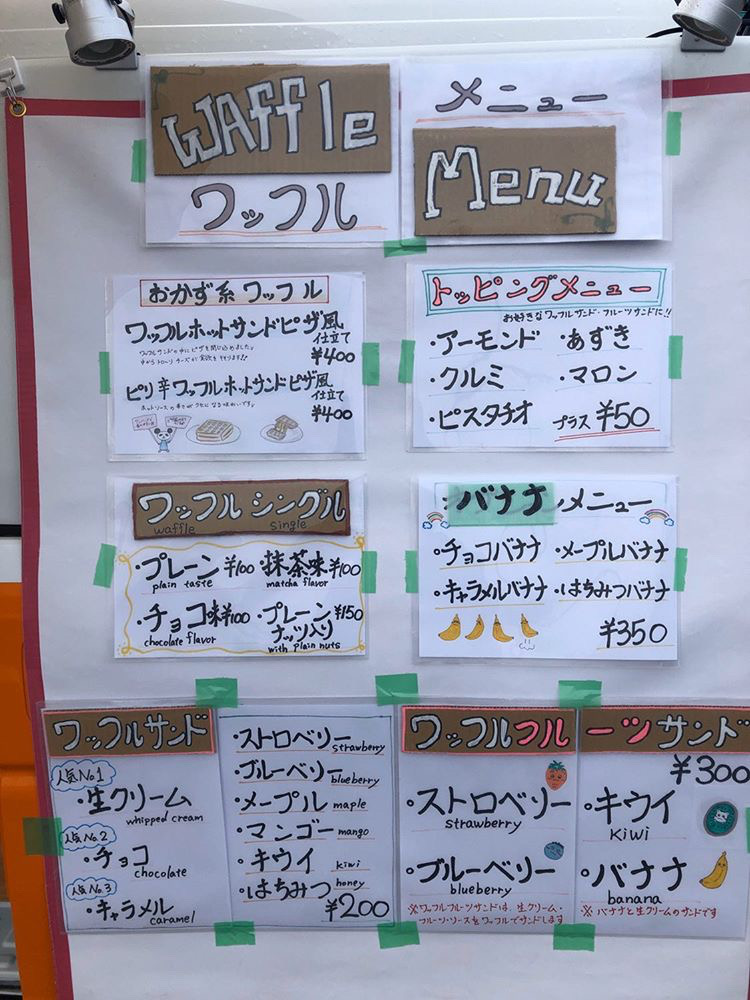 Waffle
ワッフル
メニュー
Menu
おかず系ワッフル
ワッフルホットサンドピザ風
仕立て
ワッフルサンドの中にピザを閉じ込めました♪
¥400
ピリ辛ワッフルホットサンドピザ風
仕立て
ホットソースの辛さがクセになる味わいです♪
¥400
トッピングメニュー
お好きなワッフルサンド・フルーツサンドに!!
・アーモンド ・あずき
・クルミ ・マロン
・ピスタチオ プラス ¥50
ワッフルシングル
waffle single
・プレーン ¥100 ・抹茶味 ¥100
plain taste matcha flavor
・チョコ味 ¥100 ・プレーン ¥150
ナッツ入り
chocolate flavor with plain nuts
バナナ メニュー
・チョコバナナ ・メープルバナナ
・キャラメルバナナ ・はちみつバナナ
¥350
ワッフルサンド
人気No.1
・生クリーム
whipped cream
人気No.2
・チョコ
chocolate
人気No.3
・キャラメル
caramel
・ストロベリー strawberry
・ブルーベリー blueberry
・メープル maple
・マンゴー mango
・キウイ kiwi
・はちみつ honey
¥200
ワッフルフルーツサンド
¥300
・ストロベリー
strawberry
・ブルーベリー
blueberry
※ワッフルフルーツサンドは、生クリーム・
フルーツ・ソースをワッフルでサンドします
・キウイ
kiwi
・バナナ
banana
※バナナと生クリームのサンドです